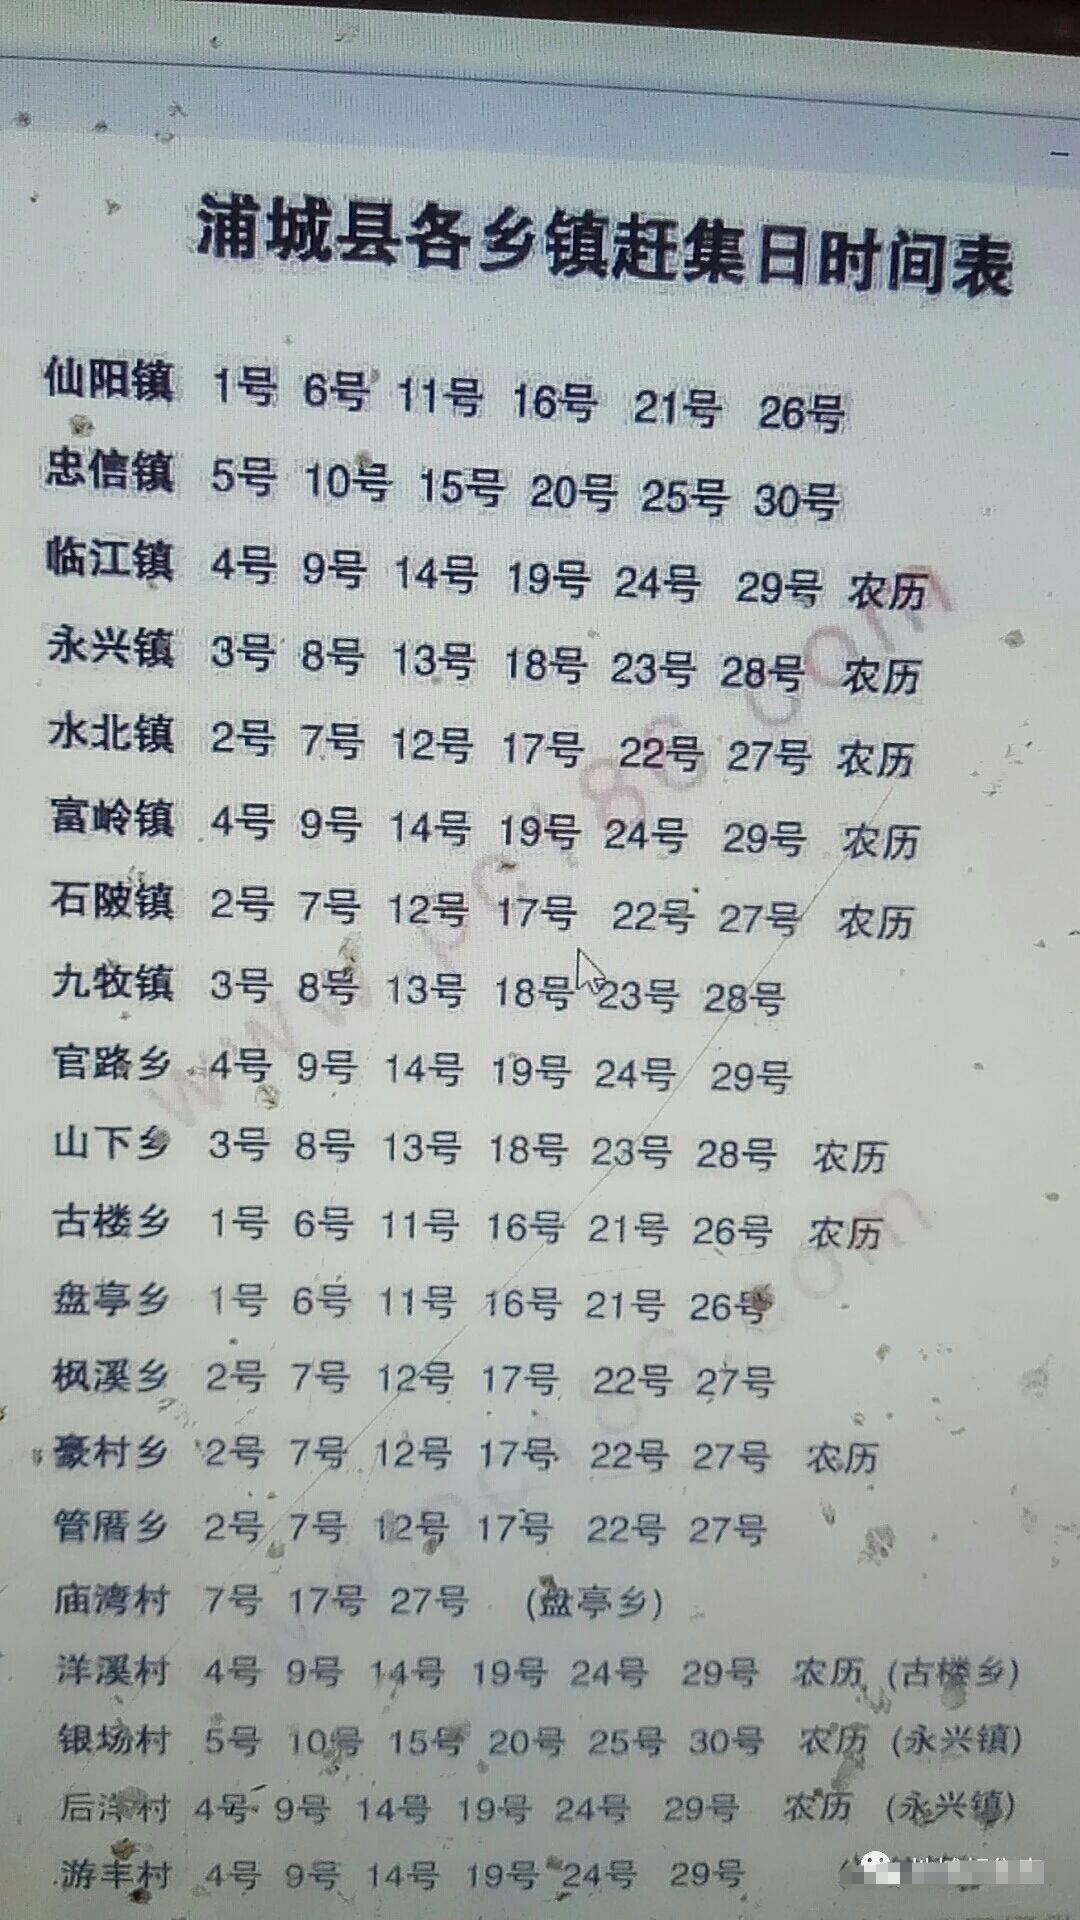 浦城县各乡镇赶集日时间表
仙阳镇 1号 6号 11号 16号 21号 26号
忠信镇 5号 10号 15号 20号 25号 30号
临江镇 4号 9号 14号 19号 24号 29号 农历
永兴镇 3号 8号 13号 18号 23号 28号 农历
水北镇 2号 7号 12号 17号 22号 27号 农历
富岭镇 4号 9号 14号 19号 24号 29号 农历
石陂镇 2号 7号 12号 17号 22号 27号 农历
九牧镇 3号 8号 13号 18号 23号 28号
官路乡 4号 9号 14号 19号 24号 29号
山下乡 3号 8号 13号 18号 23号 28号 农历
古楼乡 1号 6号 11号 16号 21号 26号 农历
盘亭乡 1号 6号 11号 16号 21号 26号
枫溪乡 2号 7号 12号 17号 22号 27号
豪村乡 2号 7号 12号 17号 22号 27号 农历
管厝乡 2号 7号 12号 17号 22号 27号
庙湾村 7号 17号 27号 (盘亭乡)
洋溪村 4号 9号 14号 19号 24号 29号 农历 (古楼乡)
银场村 5号 10号 15号 20号 25号 30号 农历 (永兴镇)
后洋村 4号 9号 14号 19号 24号 29号 农历 (永兴镇)
游丰村 4号 9号 14号 19号 24号 29号